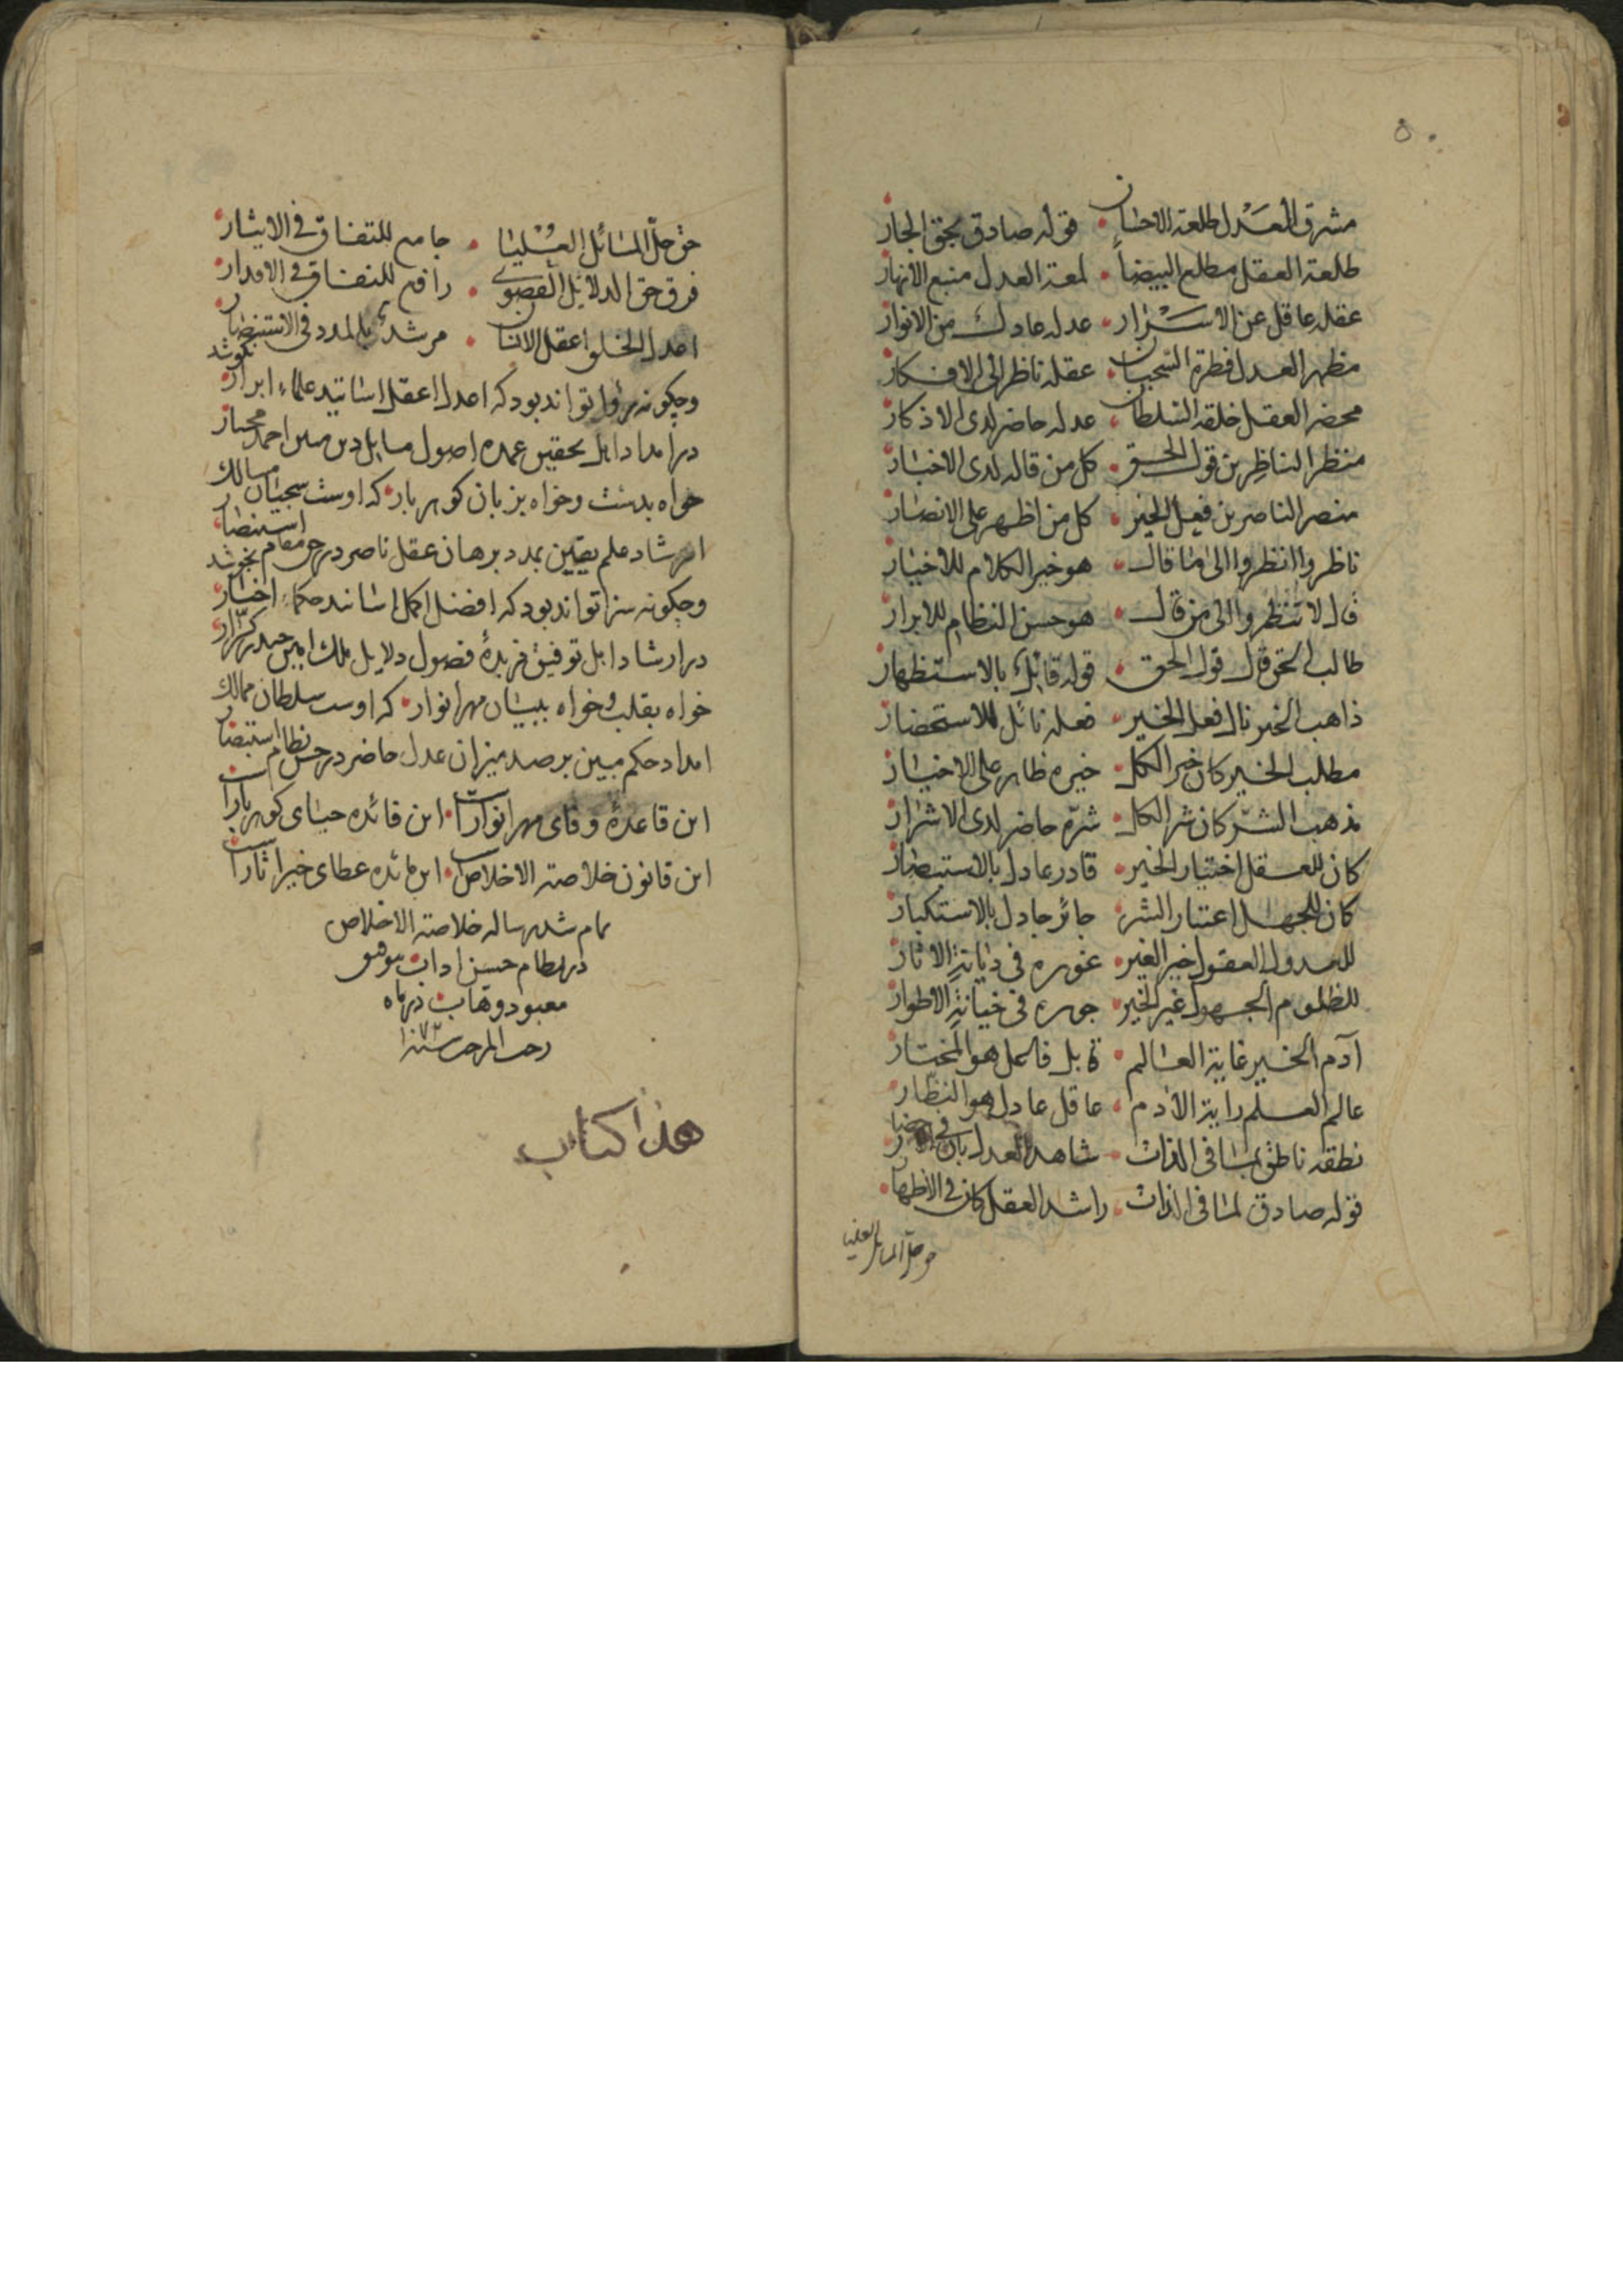 ۵۰
مشرق العدل طلعة الاحسان قوله صادق بحق الجار
طلعة العقل مطلع البيضا لمعة العدل منبع الانهار
عقله عاقل عن الاسرار عدله عادل من الانوار
مظهر العدل فطرة السبحان عقله ناظر الى الافكار
محضر العقل خلقة السلطان عدله حاضر لدى الاذكار
منظر الناظرين قول الحق كل من قاله لدى الاخبار
منصر الناصرين فعل الخير كل من اظهر على الانصار
ناظروا انظروا الى ما قال هو خير الكلام للاخيار
قال لا تنظروا الى من قال هو حسن النظام للابرار
طالب الحق قال قول الحق قوله قائل بالاستظهار
ذاهب الخير نال فعل الخير فعله نائل للاستحضار
مطلب الخير كان خير الكل خيره ظاهر على الاخيار
مذهب الشر كان شر الكل شره حاضر لدى الاشرار
كان للعقل اختيار الخير قادر عادل بالاستبصار
كان للجهل اعتبار الشر جائر جادل بالاستكبار
للعدول العقول خير الغير غوره فى ديانة الاثار
للظلوم الجهول غير الخير جوره فى خيانة الاطوار
آدم الخير غاية العالم قابل فاعل هو المختار
عالم العلم راية الآدم عاقل عادل هو النظار
نطقه ناطق بما فى الذات شاهد العدل بان فى
قوله صادق لما فى الذات راشد العقل كان فى الاظهار
حق حل المسائل العليا
حق حل المسائل العليا جامع للتفاق فى الايثار
فرق حق الدلائل القصوى رافع للنفاق فى الاقدار
اعدل الخلوا عقل الانسان مرشد بالمدد فى الاستنصار
وچكونه روا تواند بود كه اعدل اعقل اساتيد علماء ابرار نكوشد
در امداد اهل تحقيق عمده اصول مسايل دين مبين احمد مختار
خواه بدست وخواه بزبان كوهر بار كه اوست سبحان مسالك
ارشاد علم يقين بمدد برهان عقل ناصر در هر مقام استنصار
وچكونه سزا تواند بود كه افضل اكمل اساتيد حكماء اخيار نجوشد
در ارشاد اهل توفيق زبده فصول دلايل ملك امين حيدر كرار
خواه بقلب وخواه ببيان مهر انوار كه اوست سلطان ممالك
امداد حكم مبين برصد ميزان عدل حاضر در حسن نظام استبصار
اين قاعده وفاى مهر انوارست اين فائده حياى كوهر بارست
اين قانون خلاصة الاخلاص اين مائده عطاى خير اثارست
تمام شد رساله خلاصة الاخلاص
در نظام حسن اداب بتوفيق
معبود وهاب در ماه
رجب المرجب سنه
هذا كتاب